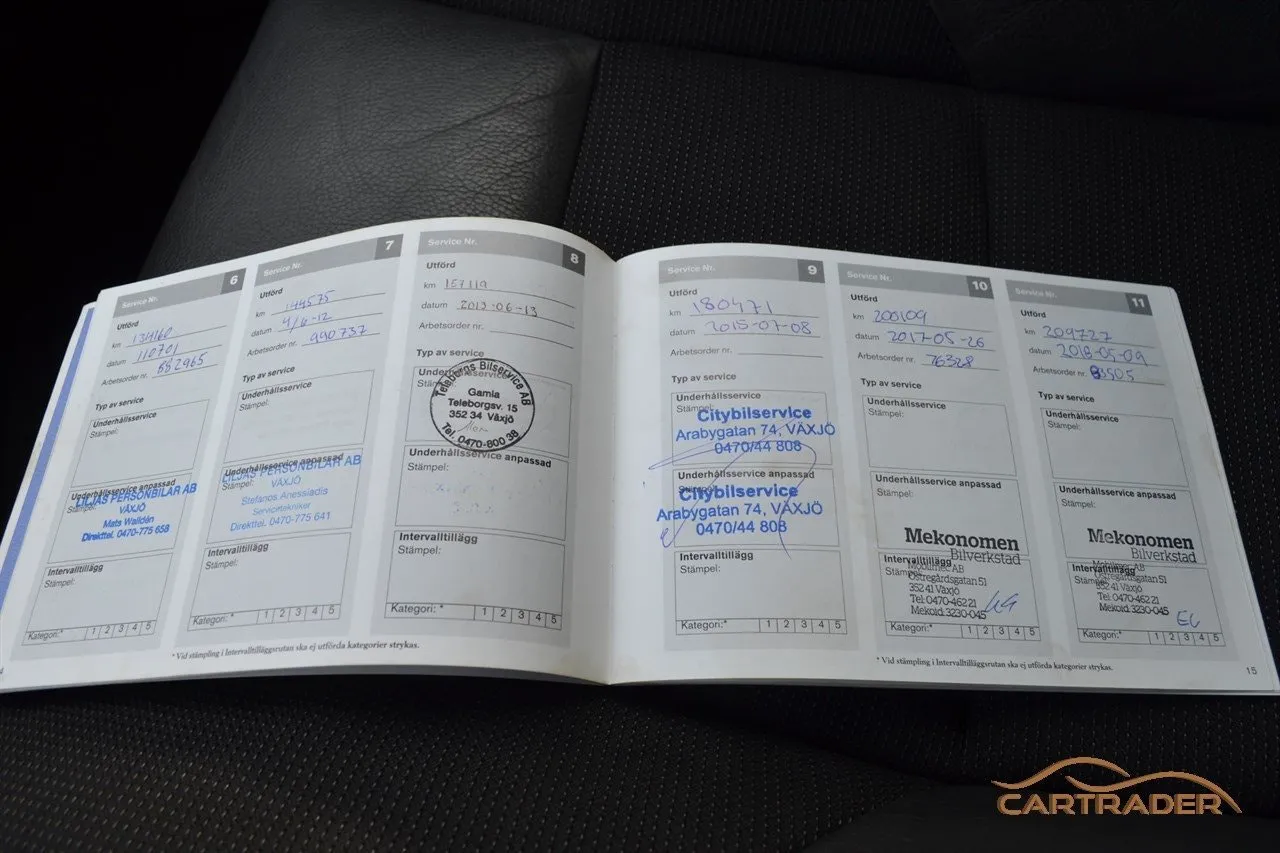 Service Nr. 6
Utförd
km 134160
datum 110701
Arbetsorder nr. 882965
Typ av service
Underhållsservice
Stämpel:
Underhållsservice anpassad
Stämpel:
LILJAS PERSONBILAR AB
VÄXJÖ
Mats Walldén
Direkttel. 0470-775 658
Intervalltillägg
Stämpel:
Kategori:* 1 2 3 4 5
Service Nr. 7
Utförd
km 144575
datum 4/6-12
Arbetsorder nr. 990737
Typ av service
Underhållsservice
Stämpel:
Underhållsservice anpassad
Stämpel:
LILJAS PERSONBILAR AB
VÄXJÖ
Stefanos Anessiadis
Servicetekniker
Direkttel. 0470-775 641
Intervalltillägg
Stämpel:
Kategori:* 1 2 3 4 5
Service Nr. 8
Utförd
km 157119
datum 2013-06-13
Arbetsorder nr.
Typ av service
Underhållsservice
Teleborgs Bilservice AB
Gamla
Teleborgsv. 15
352 34 Växjö
Tel. 0470-800 38
Underhållsservice anpassad
Stämpel:
Intervalltillägg
Stämpel:
Kategori: * 1 2 3 4 5
* Vid stämpling i Intervalltilläggsrutan ska ej utförda kategorier strykas.
Service Nr. 9
Utförd
km 180471
datum 2015-07-08
Arbetsorder nr.
Typ av service
Underhållsservice
Stämpel:
Citybilservice
Arabygatan 74, VÄXJÖ
0470/44 808
Underhållsservice anpassad
Stämpel:
Citybilservice
Arabygatan 74, VÄXJÖ
0470/44 808
Intervalltillägg
Stämpel:
Kategori: * 1 2 3 4 5
Service Nr. 10
Utförd
km 200109
datum 2017-05-26
Arbetsorder nr. 76328
Typ av service
Underhållsservice
Stämpel:
Underhållsservice anpassad
Stämpel:
Mekonomen
Bilverkstad
Intervalltillägg
Stämpel:
Mobilmec AB
Östregårdsgatan 51
352 41 Växjö
Tel: 0470-462 21
Mekoid: 3230-045
Kategori:* 1 2 3 4 5
Service Nr. 11
Utförd
km 209727
datum 2018-05-09
Arbetsorder nr. 83505
Typ av service
Underhållsservice
Stämpel:
Underhållsservice anpassad
Stämpel:
Mekonomen
Bilverkstad
Intervalltillägg
Stämpel:
Mobilmec AB
Östregårdsgatan 51
352 41 Växjö
Tel: 0470-462 21
Mekoid: 3230-045
Kategori:* 1 2 3 4 5
* Vid stämpling i Intervalltilläggsrutan ska ej utförda kategorier strykas.
15
CARTRADER